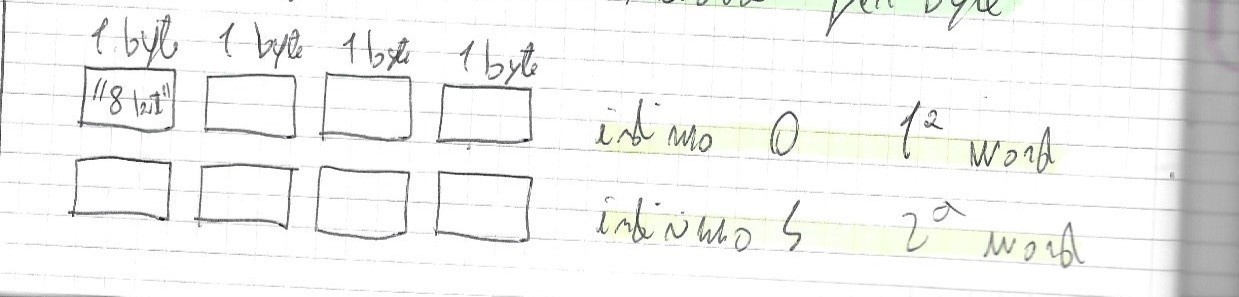 per byte
1 byte 1 byte 1 byte 1 byte
"8 bit"
indirizzo 0 1ª word
indirizzo 4 2ª word